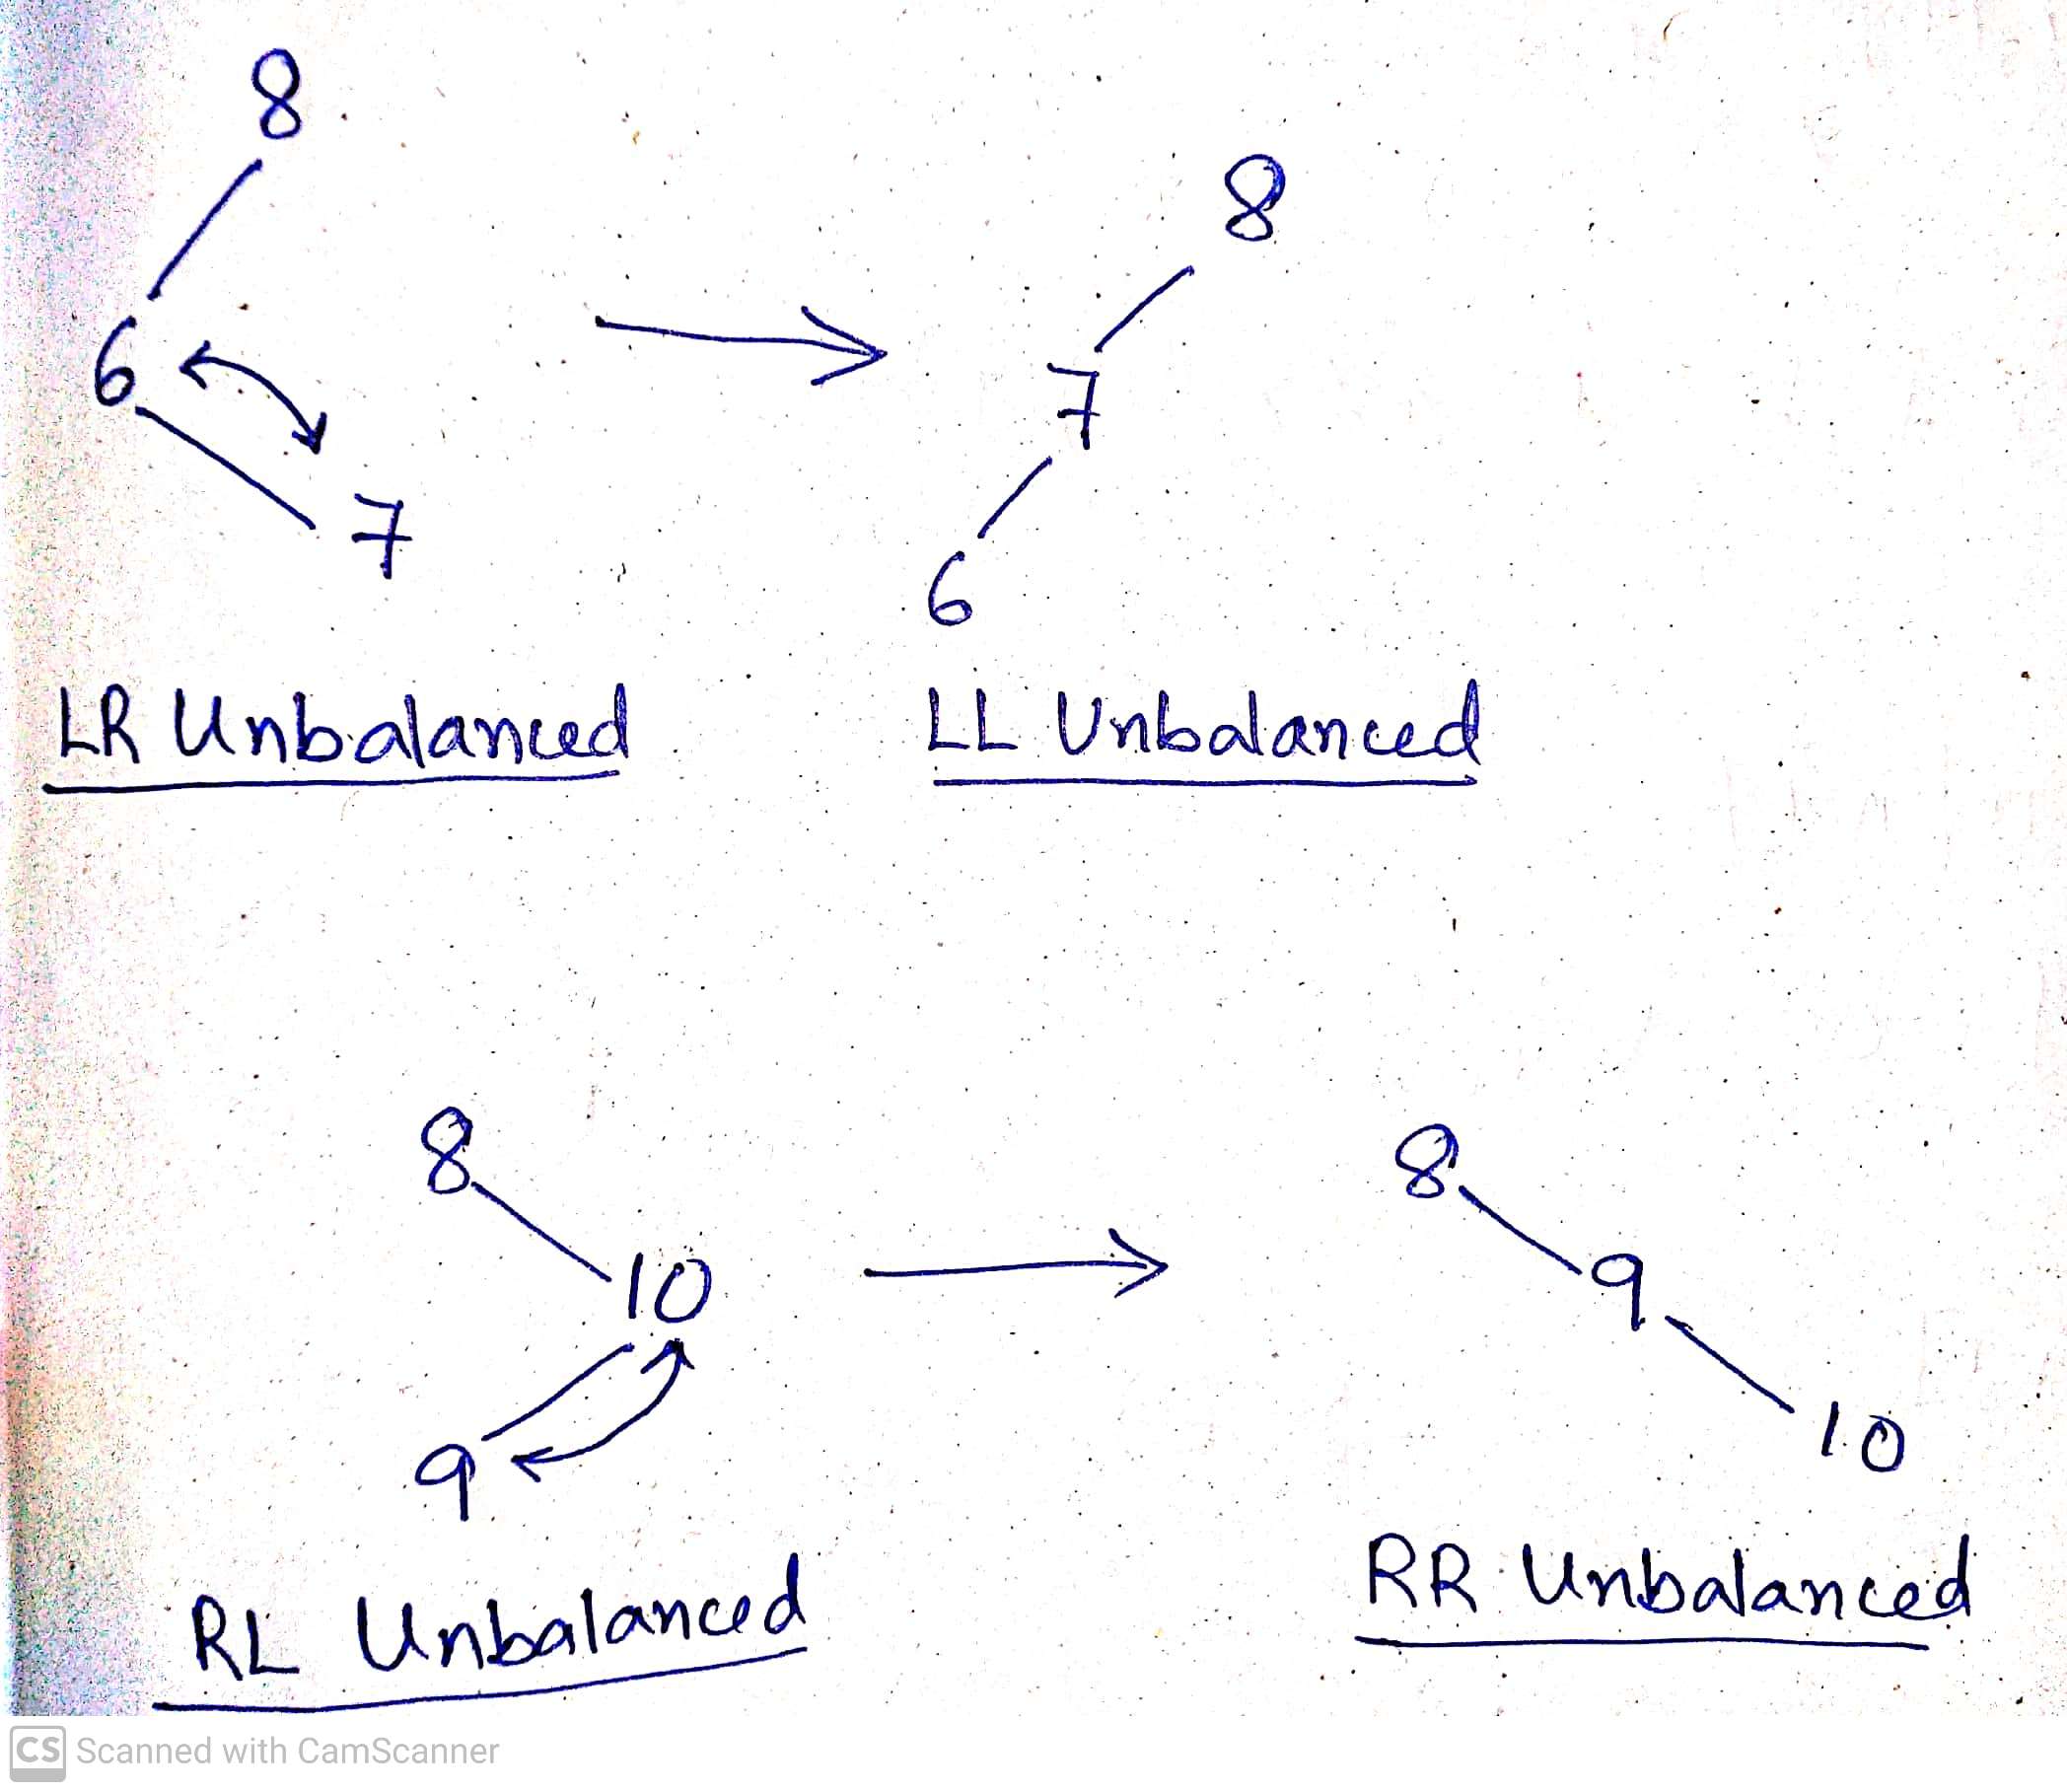 8
8
6
7
7
6
LR Unbalanced
LL Unbalanced
8
8
10
9
9
10
RL Unbalanced
RR Unbalanced
CS Scanned with CamScanner